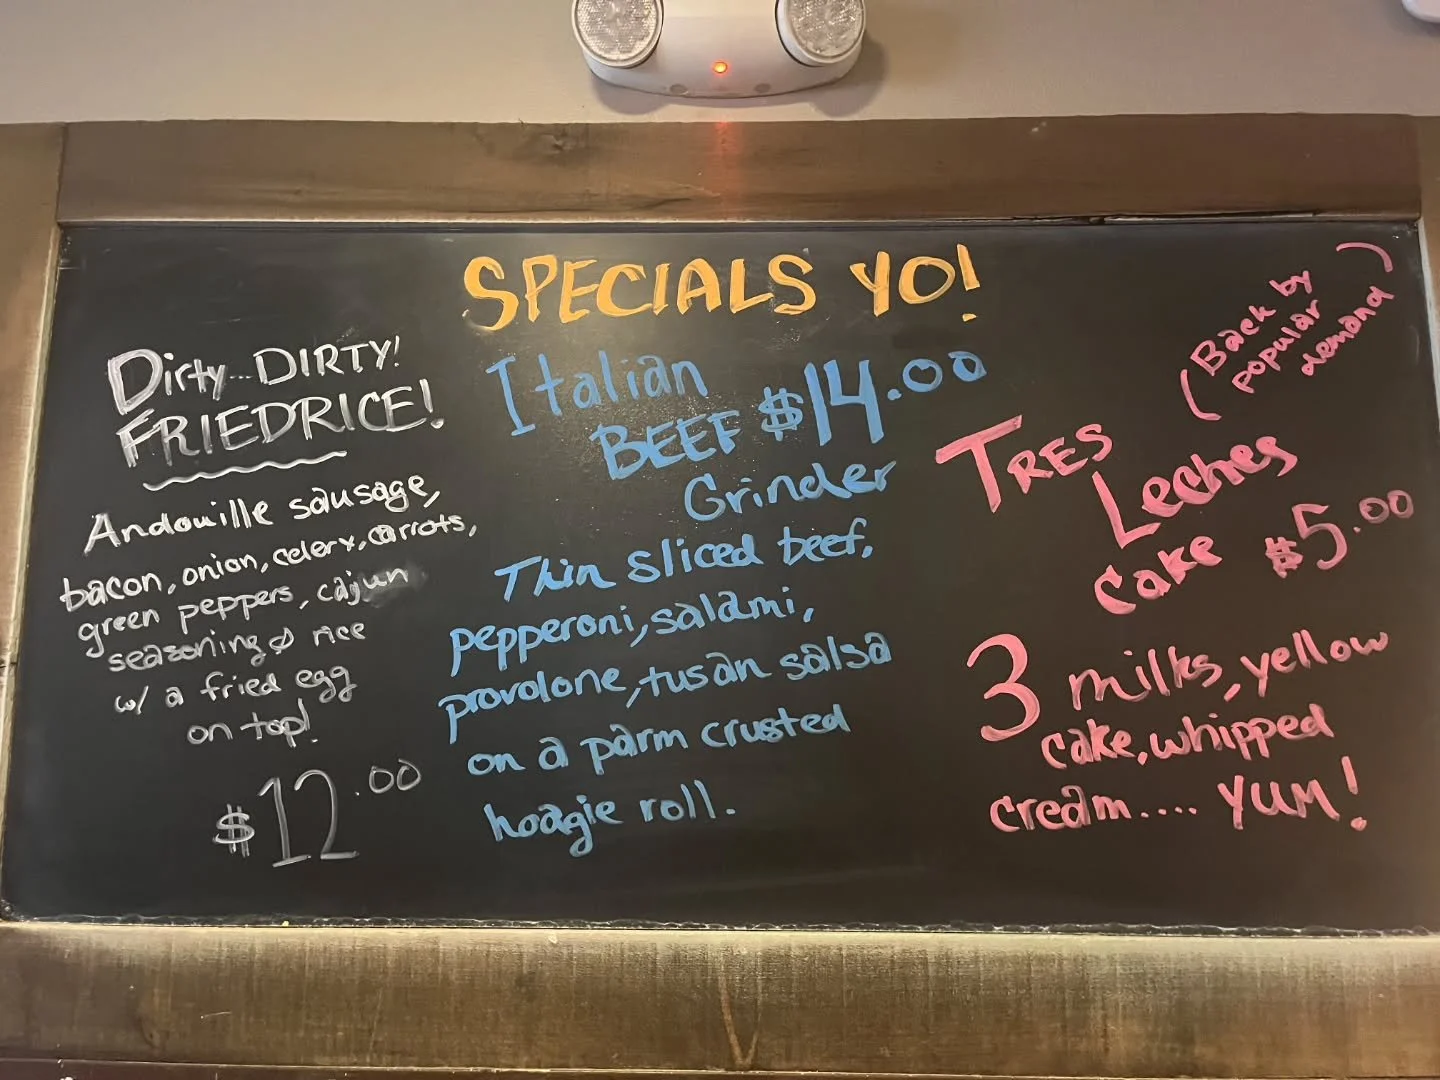 SPECIALS YO!
Dirty...DIRTY!
FRIEDRICE!
Andouille sausage,
bacon, onion, celery, carrots,
green peppers, cajun
seasoning & rice
w/ a fried egg
on top!
$12.00
Italian
BEEF $14.00
Grinder
Thin sliced beef,
pepperoni, salami,
provolone, tusan salsa
on a parm crusted
hoagie roll.
(Back by
popular
demand)
TRES
Leches
Cake $5.00
3 milks, yellow
cake, whipped
cream.... YUM!